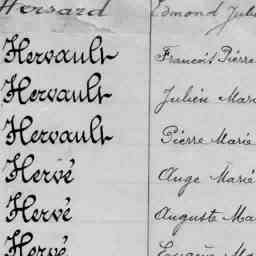 Hersard Edmond Jule
Hervault François Pierre
Hervault Julien Mar
Hervault Pierre Marie
Hervé Ange Marie
Hervé Auguste Ma
Hervé Eugène Ma